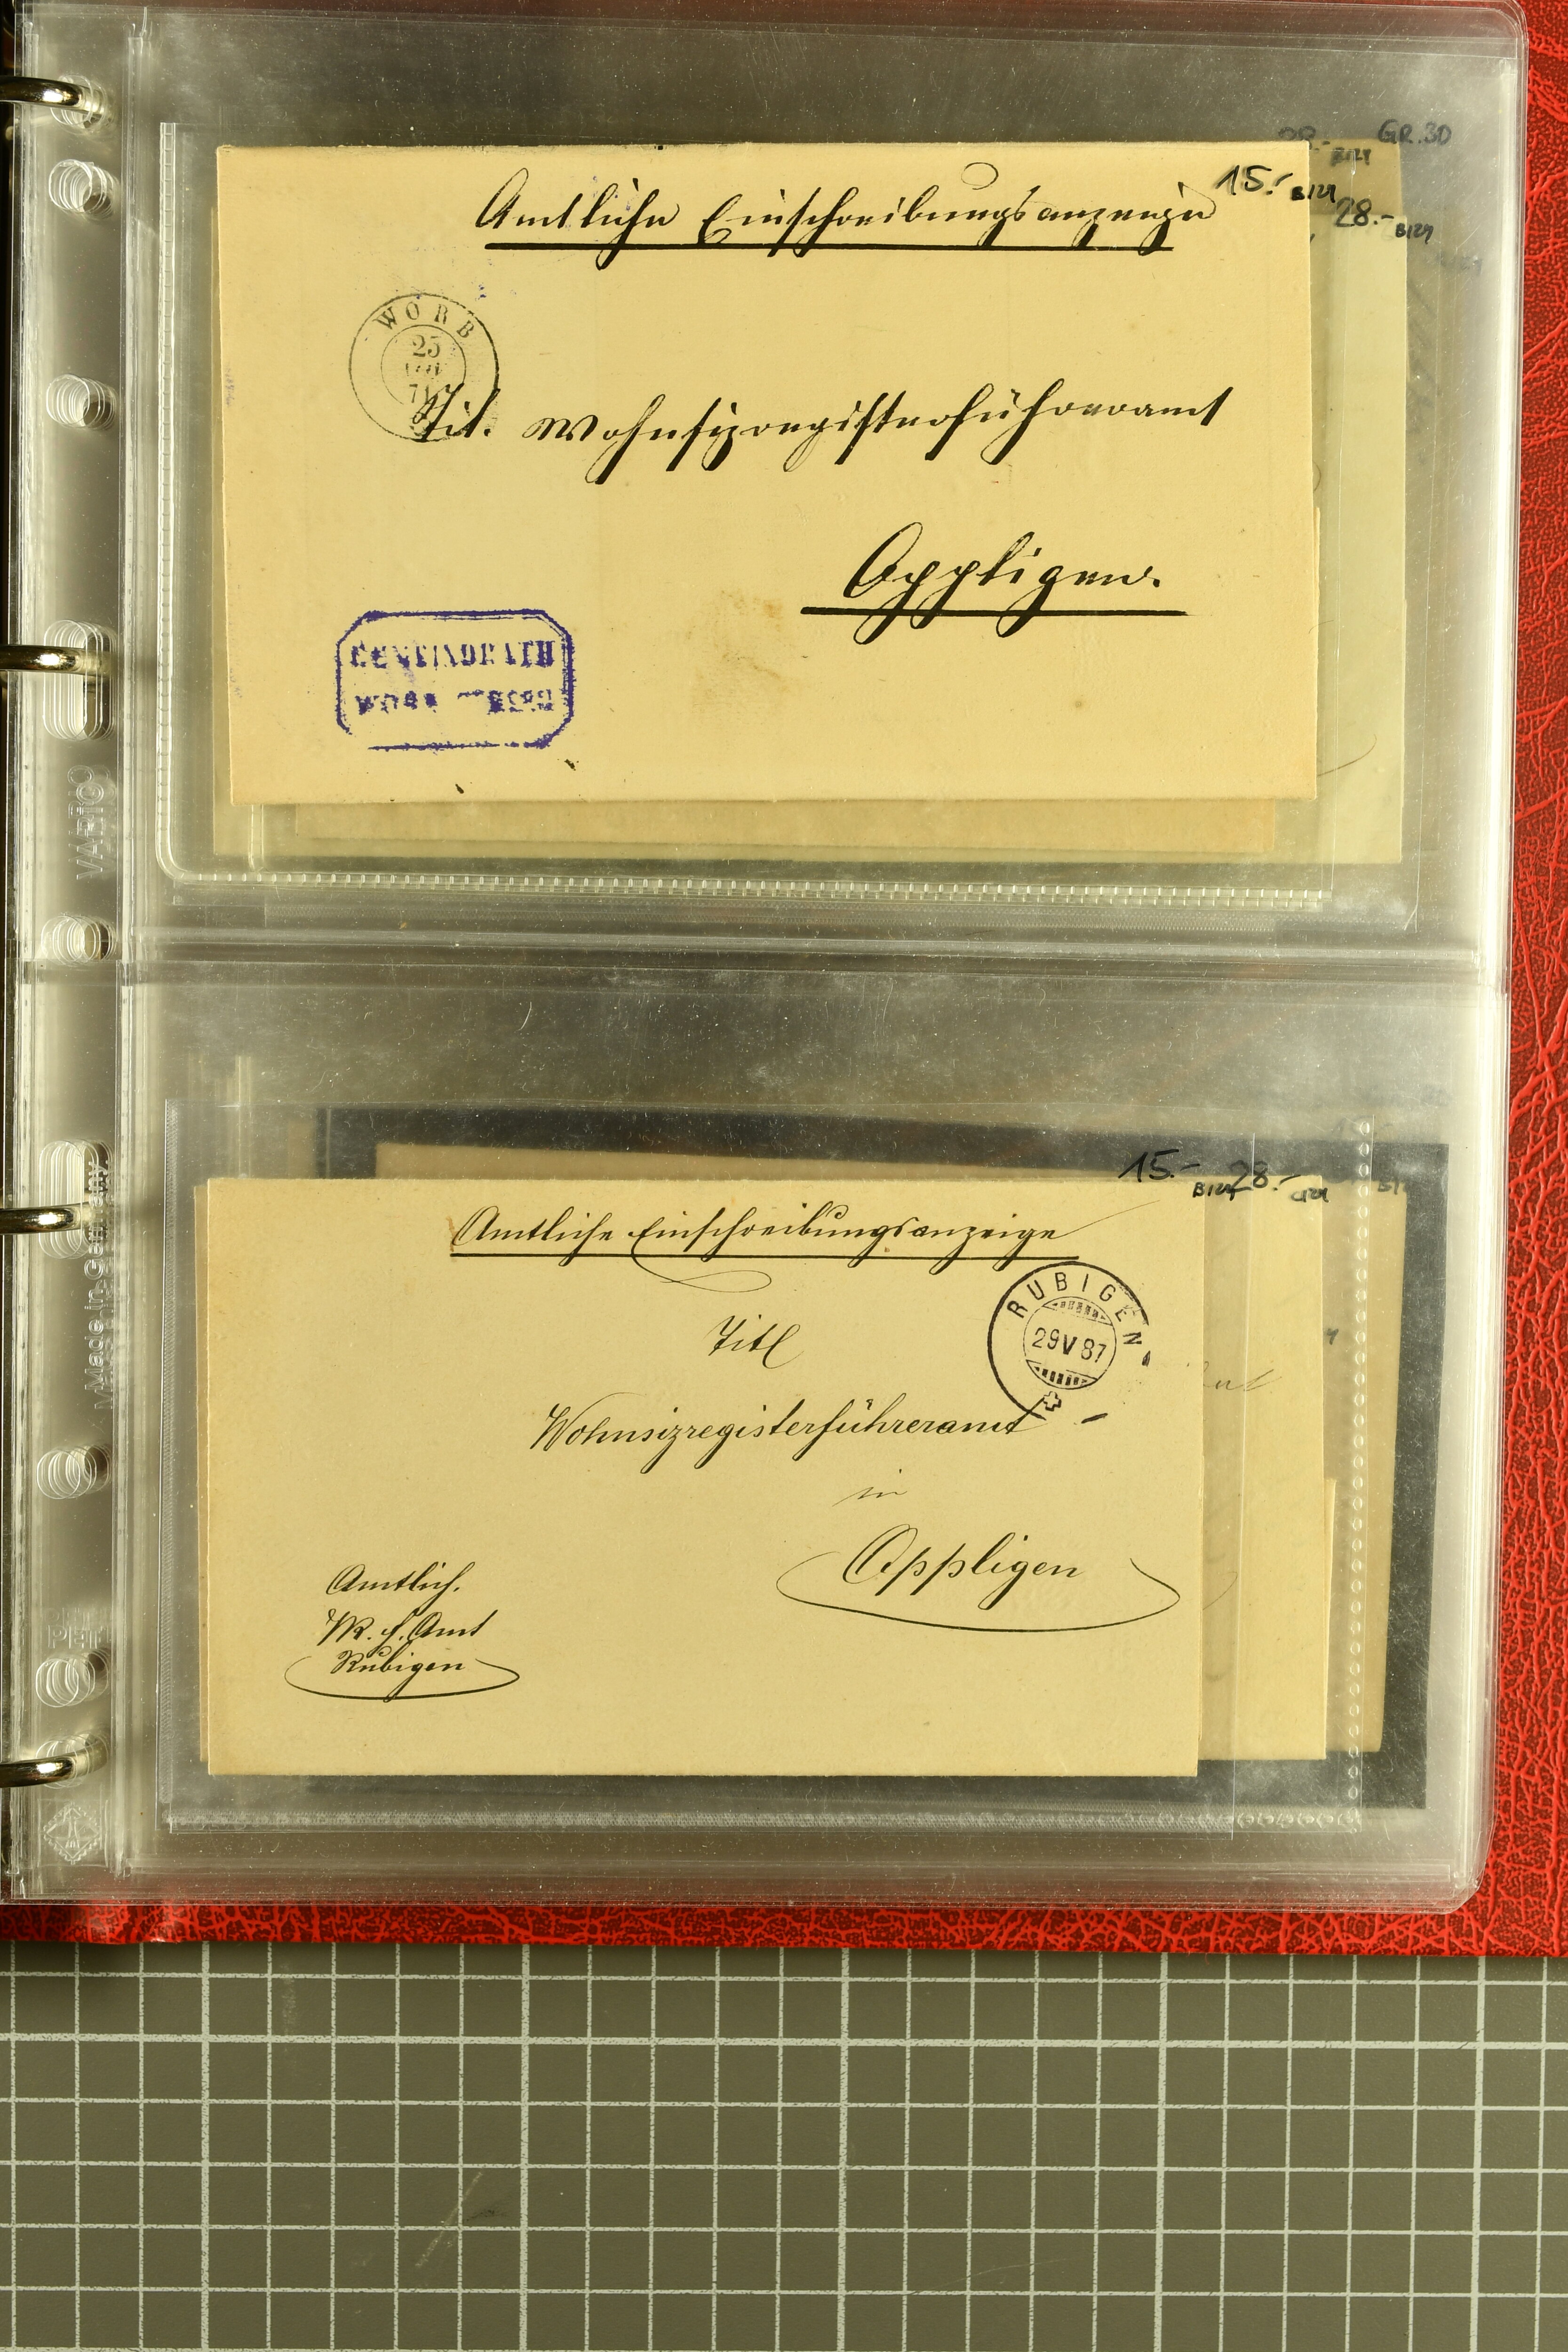 GR.30
15.- B121
28.- B121
Amtliche Einschreibungsanzeige
WORB
25
Tit. Wohnsizregisterführeramt
Oppligen.
GEMEINDRATH
WORB
VARIO
15.- B121
28.-
Amtliche Einschreibungsanzeige
RUBIGEN
29 V 87
Titl
Wohnsizregisterführeramt
in
Oppligen
Amtlich.
W. R. f. Amt
Rubigen
Made in Germany